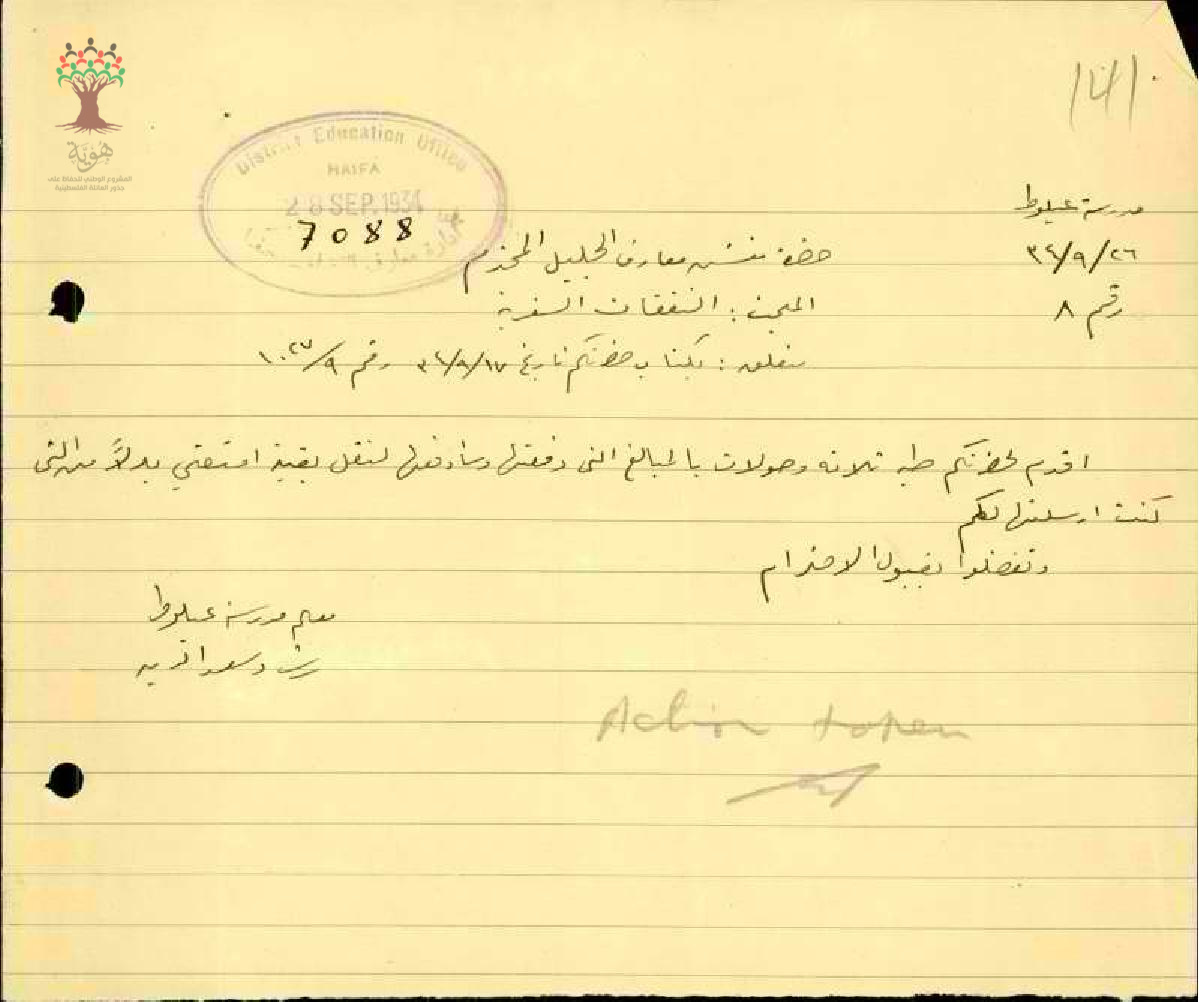 هوية
المشروع الوطني للحفاظ على
جذور العائلة الفلسطينية
141
District Education Office
HAIFA
28 SEP. 1934
7088
مدرسة عيلوط
٣٤/٩/٢٦
رقم ٨
حضرة مفتش معارف الجليل المحترم
المبحث : النفقات السفرية
متعلق : بكتاب حضرتكم تاريخ ٣٤/٩/١٧ رقم ١٠٢٧/٩
اقدم لحضرتكم طيه ثلاثة وصولات بالمبالغ التي دفعتها وسأدفعها لنقل بقية امتعتي بدلاً من التي
كنت ارسلتها لكم
وتفضلوا بقبول الاحترام
معلم مدرسة عيلوط
Action taken